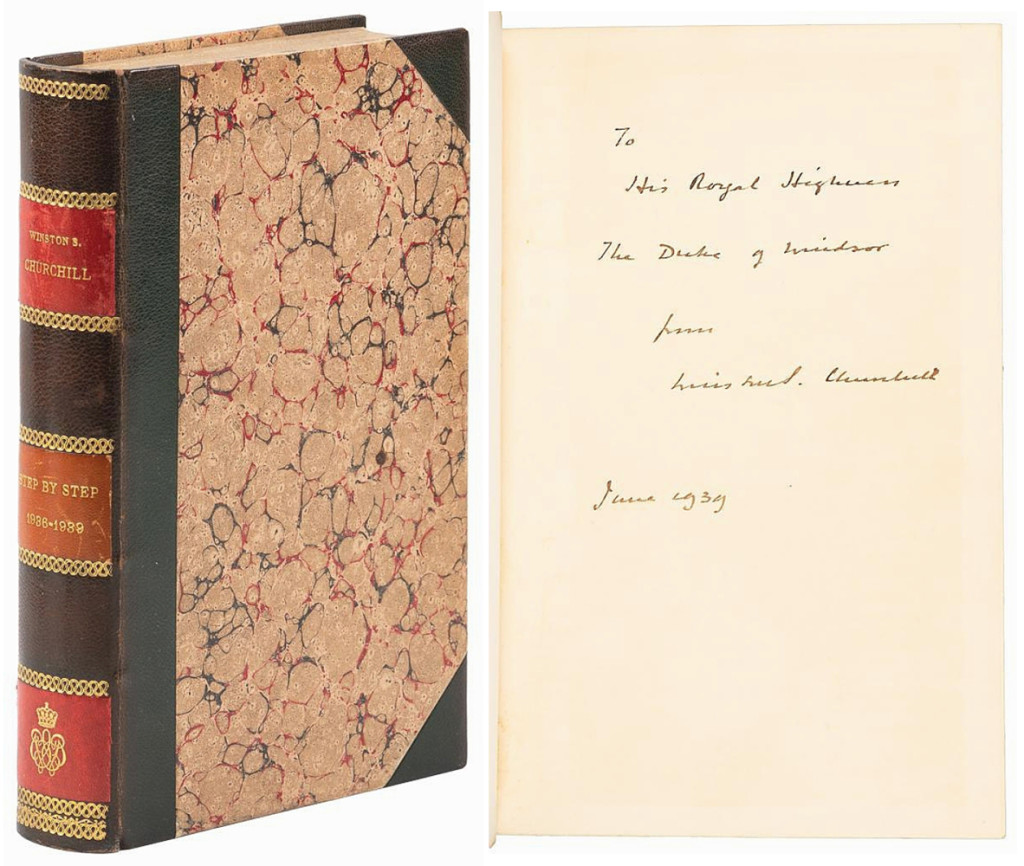 WINSTON S.
CHURCHILL
STEP BY STEP
1936-1939
To
His Royal Highness
The Duke of Windsor
from
Winston S. Churchill
June 1939